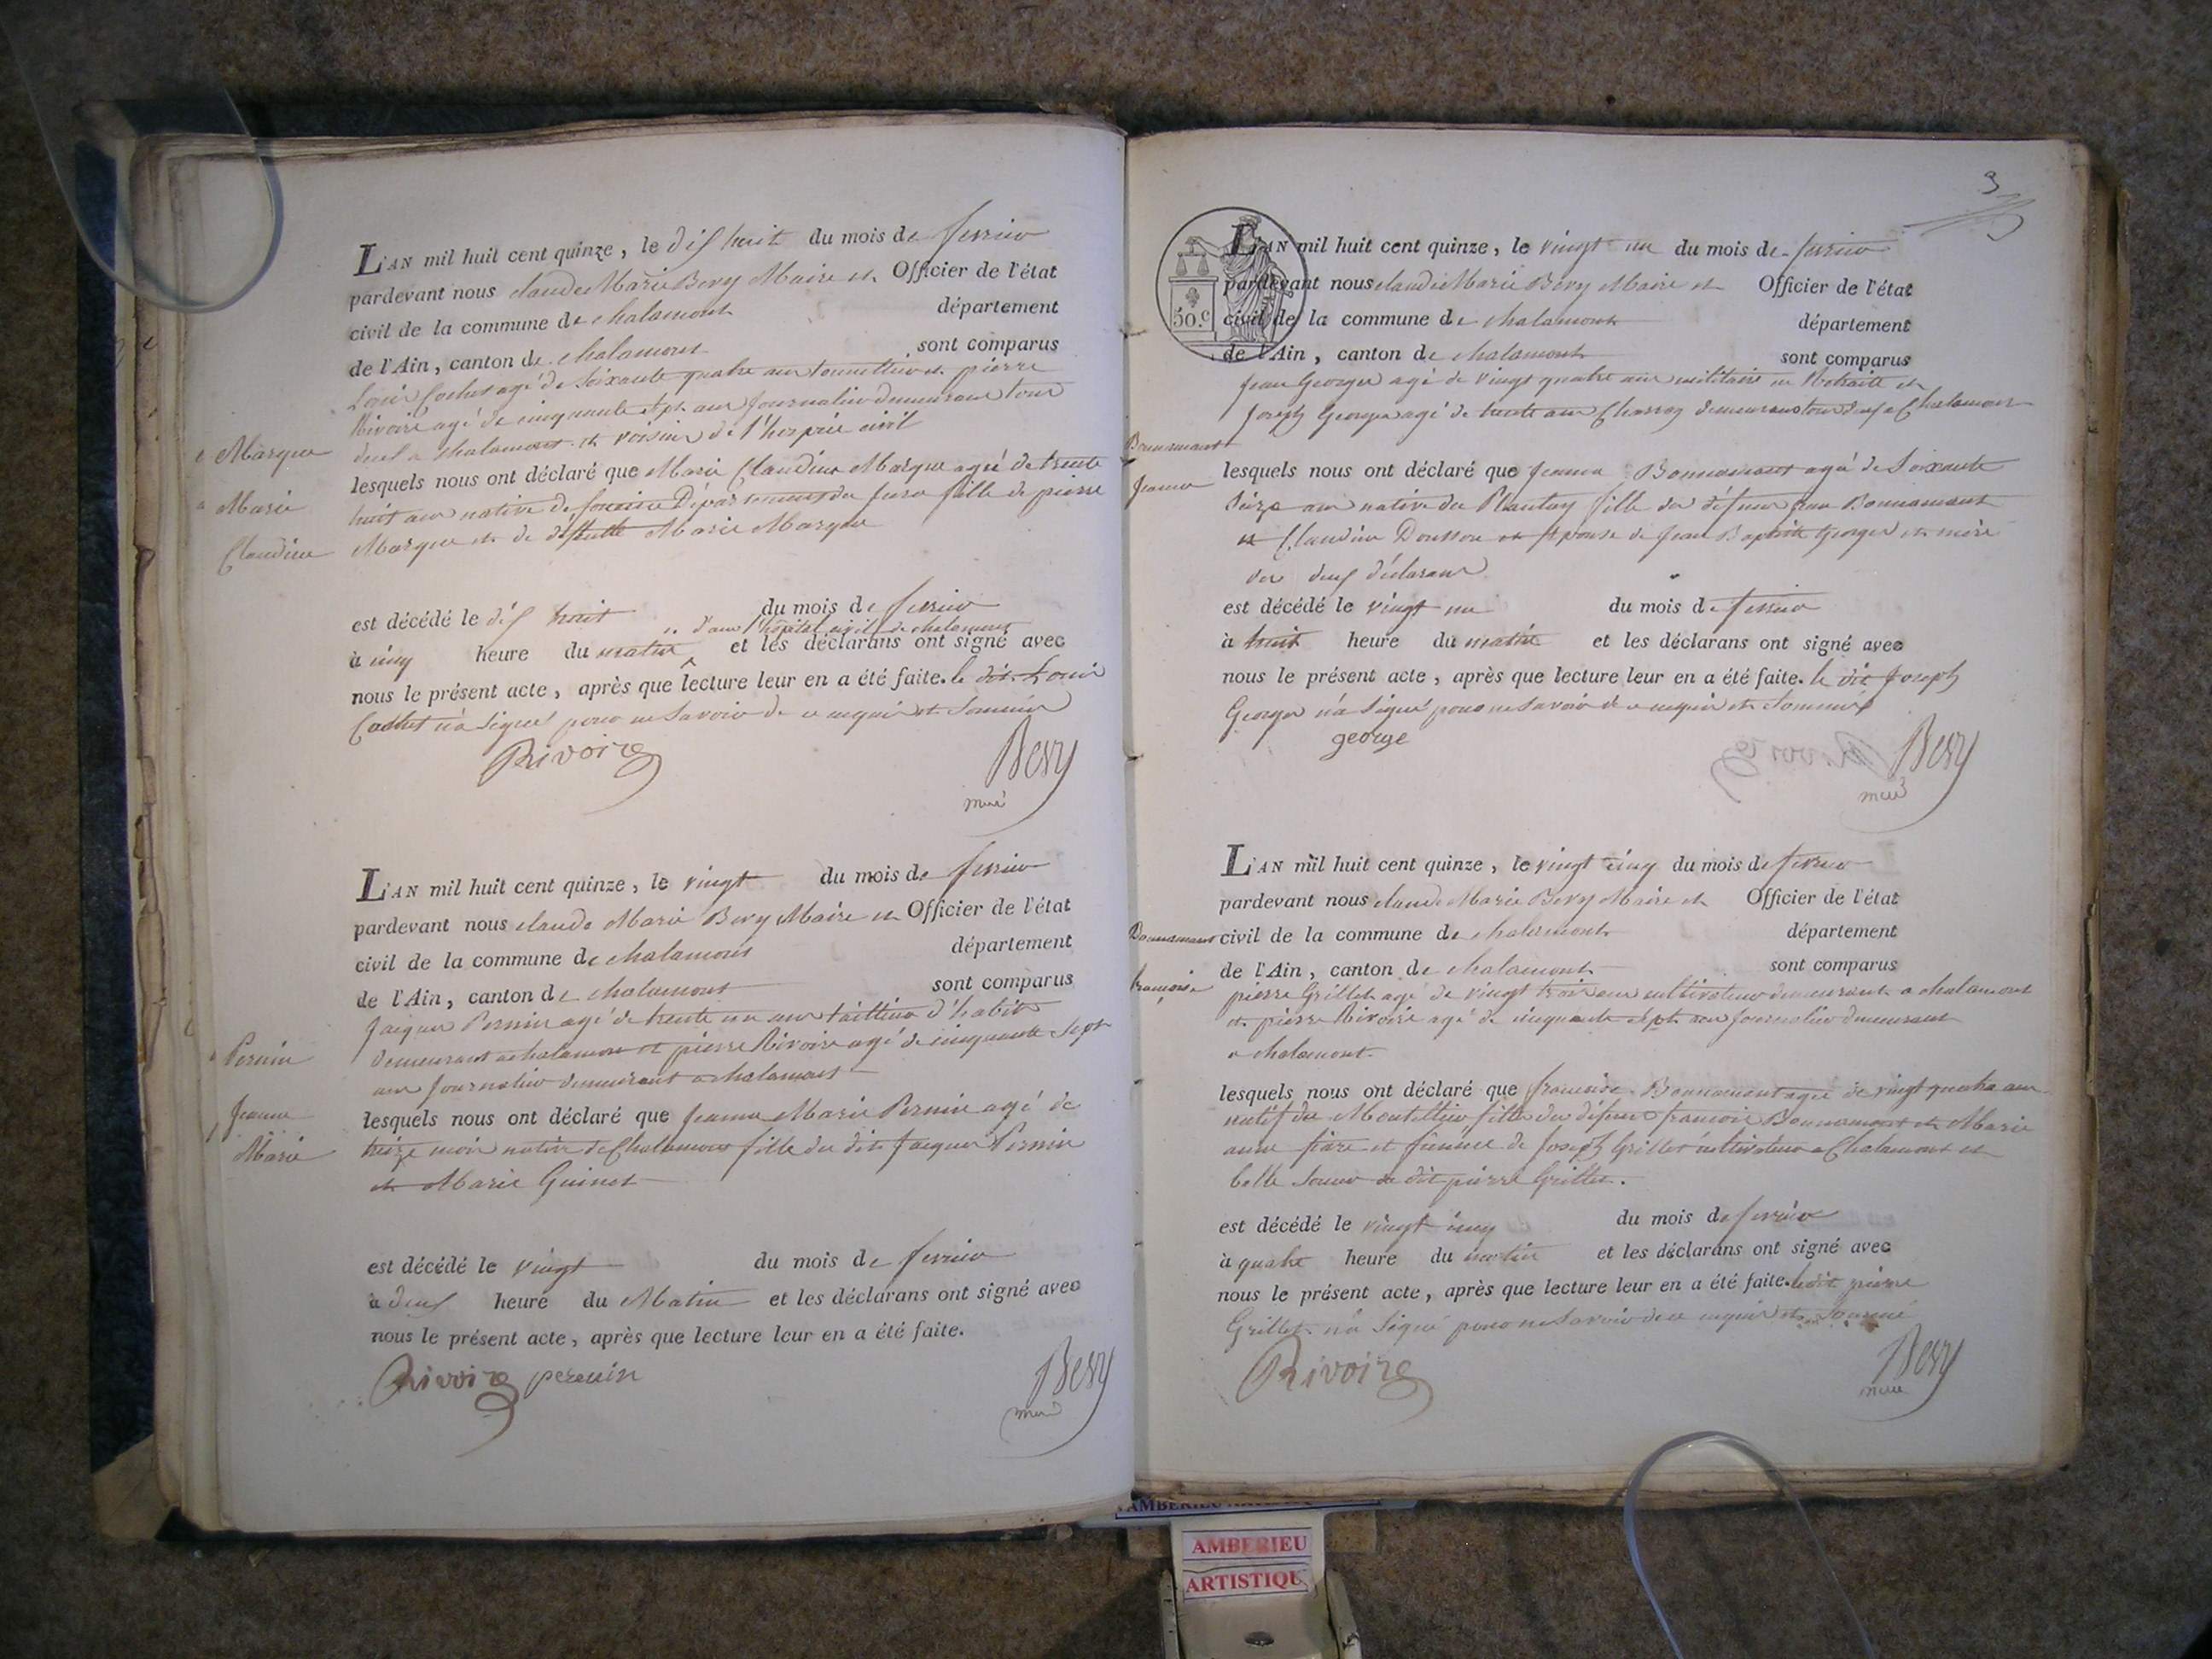 L'AN mil huit cent quinze, le dix huit du mois de fevrier
pardevant nous claude Marie Bevy Maire et Officier de l'état
civil de la commune de chalamont département
de l'Ain, canton de chalamont sont comparus
Louis Cochet agé de soixante quatre ans tonnellier et pierre
Rivoire agé de cinquante sept ans journalier demeurant tous
deux a chalamont et voisins de l'hospice civil
lesquels nous ont déclaré que Marie Claudine Marque agée de trente
huit ans native de Département du Jura fille de pierre
Marque et de défunte Marie Marque
Marque
Marie
Claudine
est décédé le dix huit du mois de fevrier
dans l'hôpital civil de chalamont
à cinq heure du matin et les déclarans ont signé avec
nous le présent acte, après que lecture leur en a été faite. le dit Louis
Cochet n'a signé pour ne savoir de ce requis et sommé
Rivoire Bevy
mire
L'AN mil huit cent quinze, le vingt du mois de fevrier
pardevant nous claude Marie Bevy Maire et Officier de l'état
civil de la commune de chalamont département
de l'Ain, canton de chalamont sont comparus
Jaques Pernin agé de trente un ans tailleur d'habits
demeurant a chalamont et pierre Rivoire agé de cinquante sept
ans journalier demeurant a chalamont
Pernin
Jeanne
Marie
lesquels nous ont déclaré que Jeanne Marie Pernin agé de
treize mois native de Chalamont fille du dit Jaques Pernin
et Marie Guinet
est décédé le vingt du mois de fevrier
à deux heure du Matin et les déclarans ont signé avec
nous le présent acte, après que lecture leur en a été faite.
Rivoire perenin Bevy
mire
3
50.c
L'AN mil huit cent quinze, le vingt un du mois de fevrier
pardevant nous claude Marie Bevy Maire et Officier de l'état
civil de la commune de chalamont département
de l'Ain, canton de chalamont sont comparus
Jean Georges agé de vingt quatre ans militaire en Retraite et
Joseph Georges agé de trente ans demeurans tous deux a Chalamont
Bonnamant
Jeanne
lesquels nous ont déclaré que Jeanne Bonnamant agé de Soixante
seize ans native du Plantay fille de défunt Jean Bonnamant
et Claudine Dousson et Epouse de Jean Baptiste Georges et mère
des deux déclarans
est décédé le vingt un du mois de fevrier
à huit heure du matin et les déclarans ont signé avec
nous le présent acte, après que lecture leur en a été faite. le dit Joseph
Georges n'a signé pour ne savoir de ce requis et sommé
george Bevy
mire
L'AN mil huit cent quinze, le vingt cinq du mois de fevrier
pardevant nous claude Marie Bevy Maire et Officier de l'état
civil de la commune de chalamont département
de l'Ain, canton de chalamont sont comparus
Bonnamant
françoise
pierre Grillet agé de vingt trois ans cultivateur demeurant a chalamont
et pierre Rivoire agé de cinquante sept ans journalier demeurant
a chalamont.
lesquels nous ont déclaré que françoise Bonnamant agée de vingt quatre ans
natif du Montellier fille de défunt françois Bonnamant et Marie
anne et femme de Joseph Grillet cultivateur a Chalamont et
belle soeur du dit pierre Grillet.
est décédé le vingt cinq du mois de fevrier
à quatre heure du matin et les déclarans ont signé avec
nous le présent acte, après que lecture leur en a été faite. le dit pierre
Grillet n'a signé pour ne savoir de ce requis et sommé
Rivoire Bevy
mire
AMBERIEU
ARTISTIQU